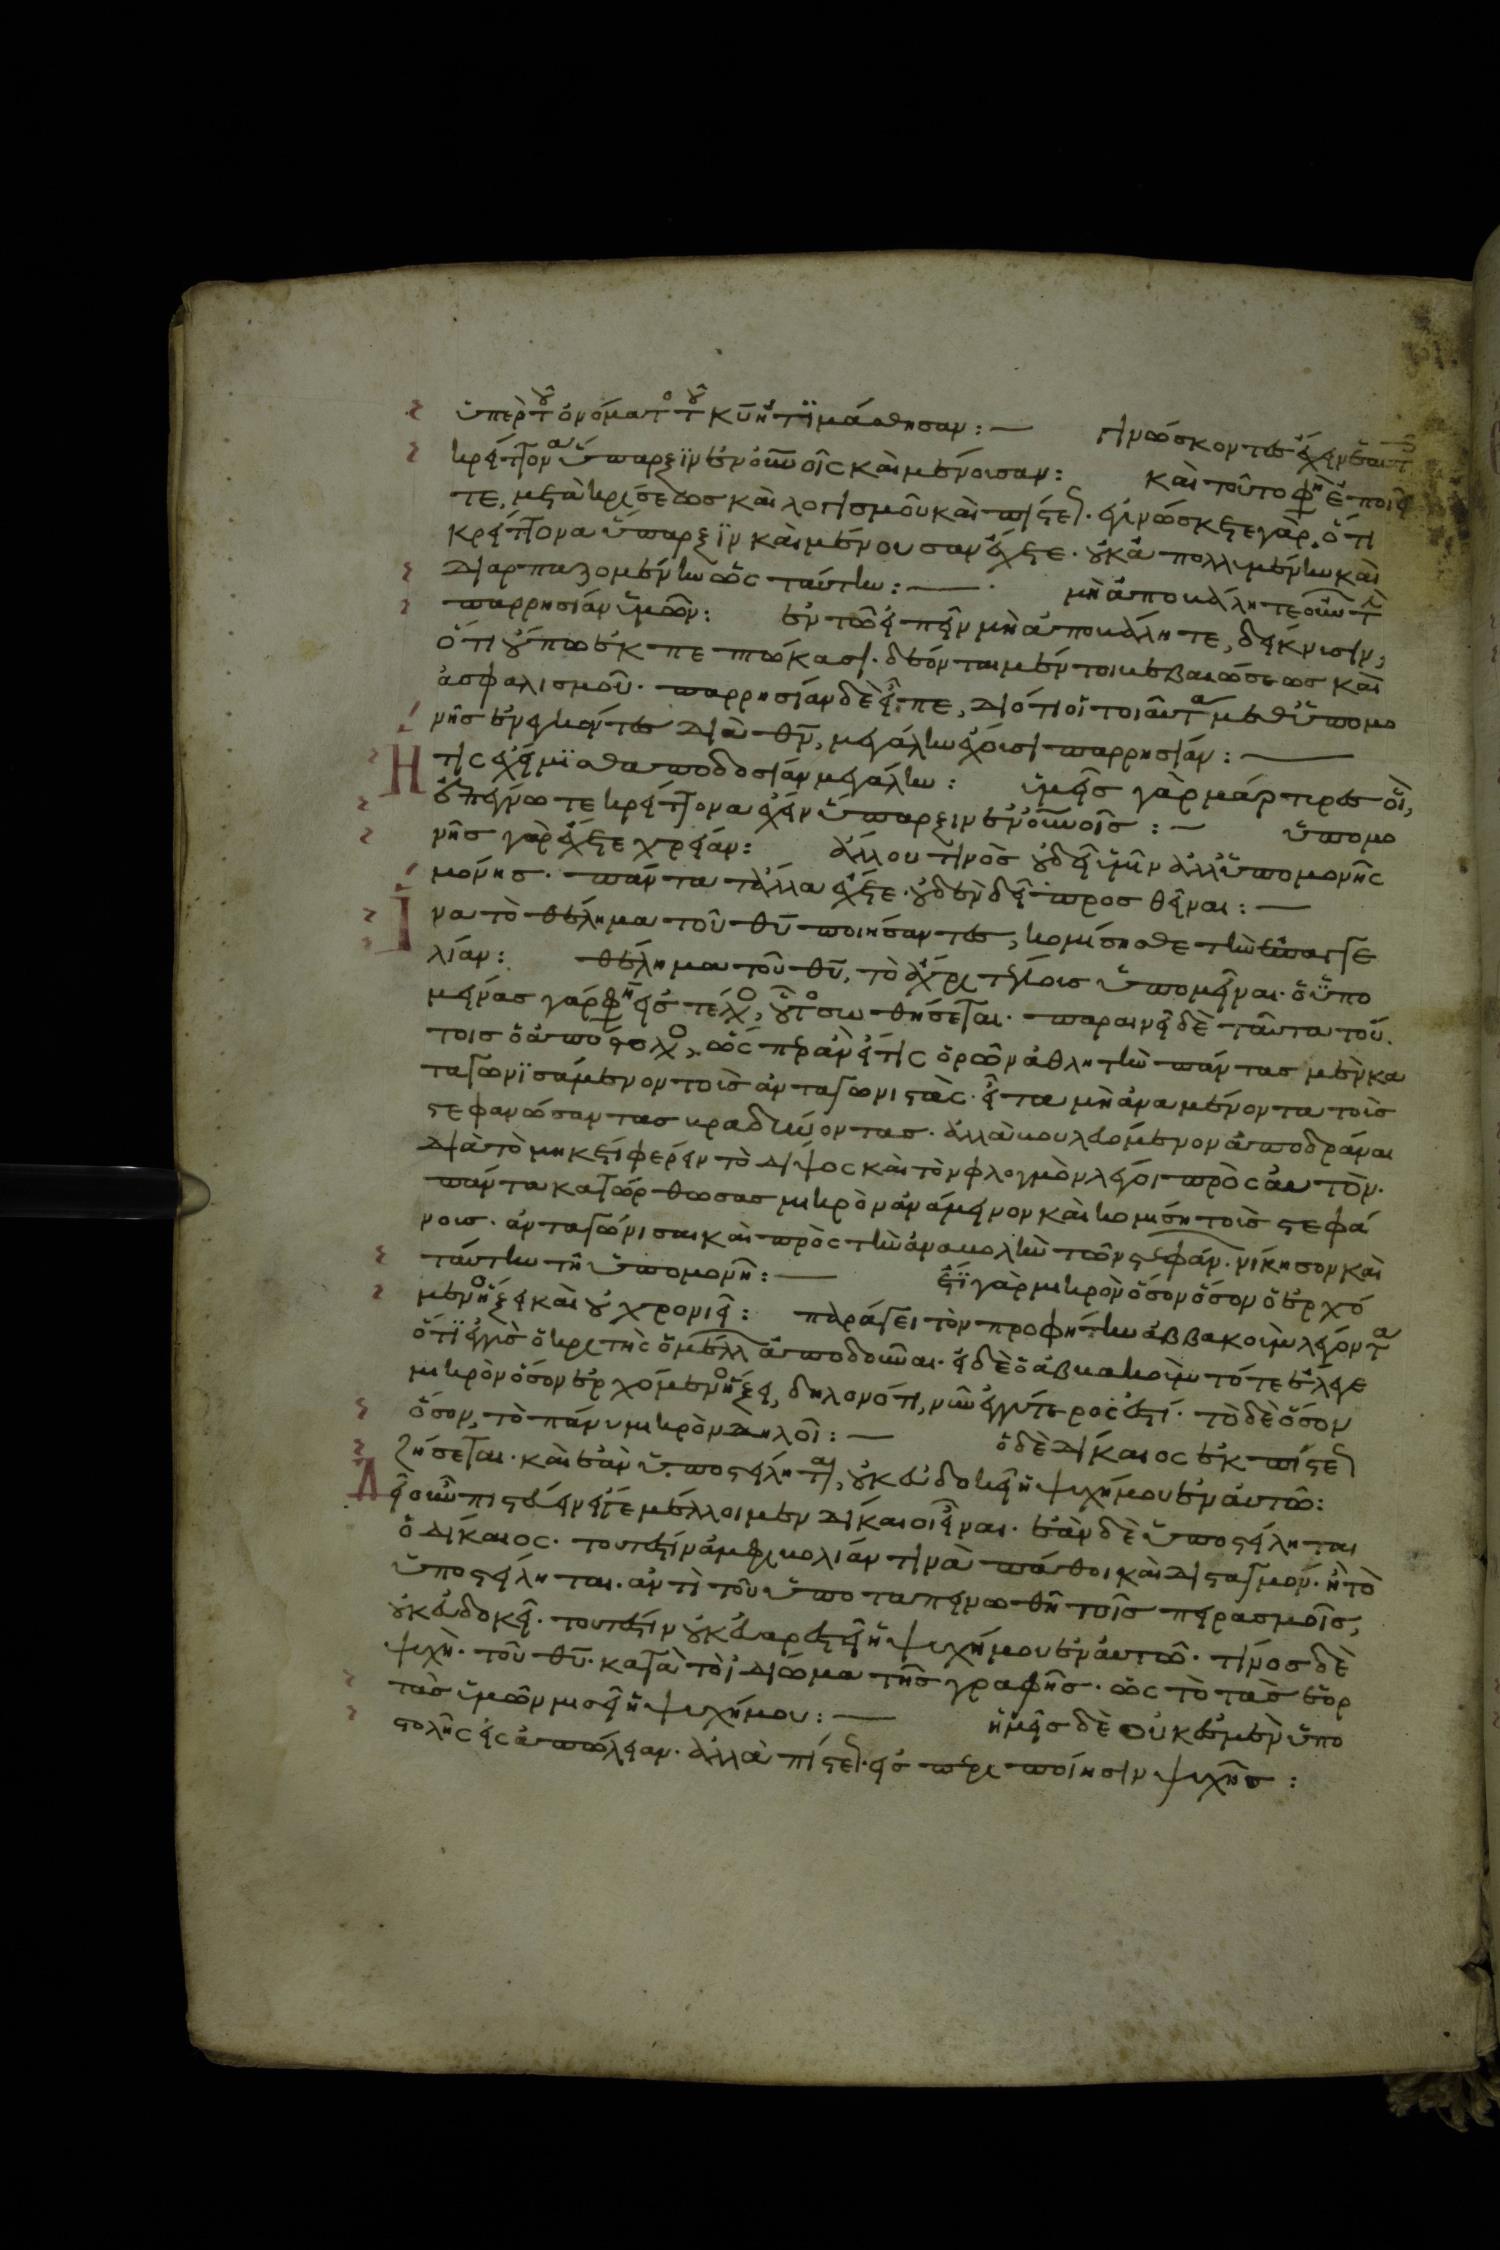 ὑπὲρ τοῦ ὀνόματο τοῦ κυ ητιμάσθησαν:— γινώσκοντες ἔχειν ἑαυτ
κρείττονα ὕπαρξιν ἐν οὐνοῖς καὶ μένουσαν: καὶ τοῦτο φη ἐποιεῖ
τε, μετὰ κρίσεως καὶ λογισμοῦ καὶ πίστε. ἐγινώσκετε γὰρ, ὅτι
κρείττονα ὕπαρξιν καὶ μένουσαν ἔχετε. οὐκ ἀπολλυμένην καὶ
διαρπαζομένην ὡς ταύτην:— μὴ ἀποβάλητε οὖν τ
παρρησίαν ὑμῶν: ἐν τῶ εἰπεῖν μὴ ἀποβάλητε, δείκνυσιν,
ὅτι οὔπω ἐκπεπτώκασι. δέονται μέντοι βεβαιώσεως καὶ
ἀσφαλισμοῦ. παρρησίαν δὲ εἶπε, διότι οἱ τοιαῦτα μεθ ὑπομο
νῆς ἐνεγκόντες διὰ θν, μεγάλην ἔχουσι παρρησίαν:—
Ητις ἔχει μισθαποδοσίαν μεγάλην: ὑμεῖς γὰρ μάρτυρες οἳ,
ἐπέγνωτε κρείττονα ἔχειν ὕπαρξιν ἐν οὐνοῖς:— ὑπομο
νῆς γὰρ ἔχετε χρείαν: ἄλλου τινὸς οὐ δεῖ ὑμῖν ἀλλ ὑπομονῆς
μόνης. πάντα τἄλλα ἔχετε. οὐδὲν δεῖ προσθεῖναι:—
Ινα τὸ θέλημα τοῦ θυ ποιήσαντες, κομίσησθε τὴν ἐπαγγε
λίαν: θέλημα τοῦ θυ, τὸ ἄχρι τέλους ὑπομεῖναι. ὁ ὑπο
μείνας γάρ φη εἰς τέλο, οὗτο σωθήσεται. παραινεῖ δὲ ταῦτα τού
τοις ὁ ἀπόστολο, ὡς περ ἂν εἴ τις ὁρῶν ἀθλητὴν πάντας μὲν κα
ταγωνισάμενον τοὺς ἀνταγωνιστάς. εἶτα μὴ ἀναμένοντα τοὺς
στεφανώσαντας βραδύνοντας. ἀλλὰ βουλόμενον ἀποδρᾶναι
διὰ τὸ μηκέτι φέρειν τὸ δίψος καὶ τὸν φλογμὸν λέγοι πρὸς αὐτὸν.
πάντα κατώρθωσας μικρὸν ἀνάμεινον καὶ κομίση τοὺς στεφά
νους. ἀνταγώνισαι καὶ πρὸς τὴν ἀναβολὴν τῶν στεφάν. νίκησον καὶ
ταύτην τῆ ὑπομονῆ:— ἔτι γὰρ μικρὸν ὅσον ὅσον ὁ ἐρχό
μενο ἥξει καὶ οὐ χρονιεῖ: παράγει τὸν προφήτην ἀββακοὺμ λέγοντα
ὅτι ἐγγὺς ὁ κριτὴς ὁ μέλλ ἀποδοῦναι. εἰ δὲ ὁ ἀβακοὺμ τότε ἔλεγε
μικρὸν ὅσον ἐρχόμενο ἥξει, δηλονότι, νῦν ἐγγύτερος ἐστί. τὸ δὲ ὅσον
ὅσον, τὸ πάνυ μικρὸν δηλοῖ:— ὁ δὲ δίκαιος ἐκ πίστε
ζήσεται. καὶ ἐὰν ὑποστείληται, οὐκ εὐδοκεῖ ἡ ψυχή μου ἐν αὐτῶ:
Δεῖ οὖν πιστεύειν εἴ γε μέλλοιμεν δίκαιοι εἶναι. ἐὰν δὲ ὑποστείληται
ὁ δίκαιος. τουτέστιν ἀμφιβολίαν τινὰ πάθοι καὶ δισταγμόν. ἢ τὸ
ὑποστείληται. ἀντὶ τοῦ ὑποταπεινωθῆ τοῖς πειρασμοῖς,
οὐκ εὐδοκεῖ. τουτέστιν οὐκ εὐαρεστεῖ ἡ ψυχή μου ἐν αὐτῶ. τίνος δὲ
ψυχὴ. τοῦ θυ. κατὰ τὸ ἰδίωμα τῆς γραφῆς. ὡς τὸ τὰς ἑορ
τὰς ὑμῶν μισεῖ ἡ ψυχή μου:— ἡμεῖς δὲ οὐκ ἐσμὲν ὑπο
στολῆς εἰς ἀπώλειαν. ἀλλὰ πίστε. εἰς περιποίησιν ψυχῆς: